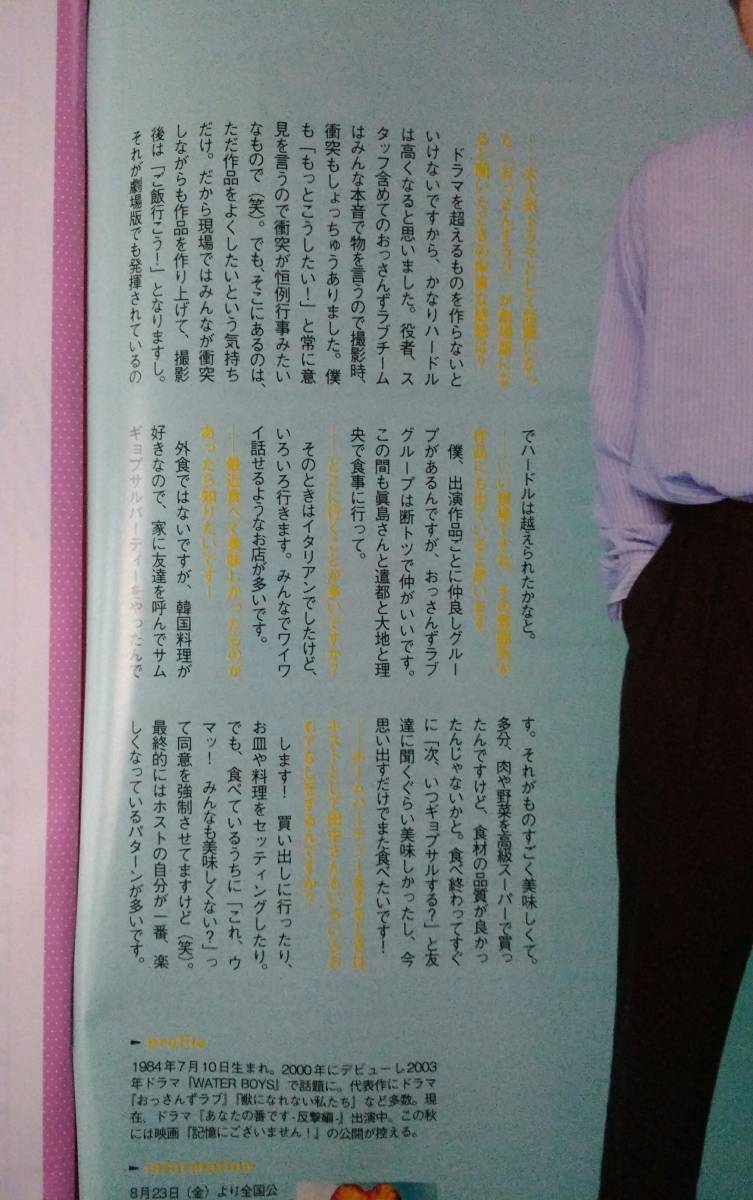 ――大人気ドラマとして話題になっ
た「おっさんずラブ」が劇場版にな
ると聞いたときの率直な感想は?
ドラマを超えるものを作らないと
いけないですから、かなりハードル
は高くなると思いました。役者、ス
タッフ含めてのおっさんずラブチーム
はみんな本音で物を言うので撮影時、
衝突もしょっちゅうありました。僕
も「もっとこうしたい!」と常に意
見を言うので衝突が恒例行事みたい
なもので(笑)。でも、そこにあるのは、
ただ作品をよくしたいという気持ち
だけ。だから現場ではみんなが衝突
しながらも作品を作り上げて、撮影
後は「ご飯行こう!」となりますし。
それが劇場版でも発揮されているの
でハードルは越えられたかなと。
――いい現場ですね。その雰囲気が
作品にも出ていると思います。
僕、出演作品ごとに仲良しグルー
プがあるんですが、おっさんずラブ
グループは断トツで仲がいいです。
この間も眞島さんと遣都と大地と理
央で食事に行って。
――どこに行くことが多いですか?
そのときはイタリアンでしたけど、
いろいろ行きます。みんなでワイワ
イ話せるようなお店が多いです。
――最近食べて美味しかったものが
あったら知りたいです!
外食ではないですが、韓国料理が
好きなので、家に友達を呼んでサム
ギョプサルパーティーをやったんで
す。それがものすごく美味しくて。
多分、肉や野菜を高級スーパーで買っ
たんですけど、食材の品質が良かっ
たんじゃないかと。食べ終わってすぐ
に「次、いつギョプサルする?」と友
達に聞くぐらい美味しかったし、今
思い出すだけでまた食べたいです!
――ホームパーティーをするときは、
ホストとして田中さんもいろいろお
もてなしをするんですか?
します! 買い出しに行ったり、
お皿や料理をセッティングしたり。
でも、食べているうちに「これ、ウ
マッ! みんなも美味しくない?」っ
て同意を強制させてますけど(笑)。
最終的にはホストの自分が一番、楽
しくなっているパターンが多いです。
profile
1984年7月10日生まれ。2000年にデビューし2003
年ドラマ『WATER BOYS』で話題に。代表作にドラマ
『おっさんずラブ』『獣になれない私たち』など多数。現
在、ドラマ『あなたの番です-反撃編-』出演中。この秋
には映画『記憶にございません!』の公開が控える。
information
8月23日(金)より全国公